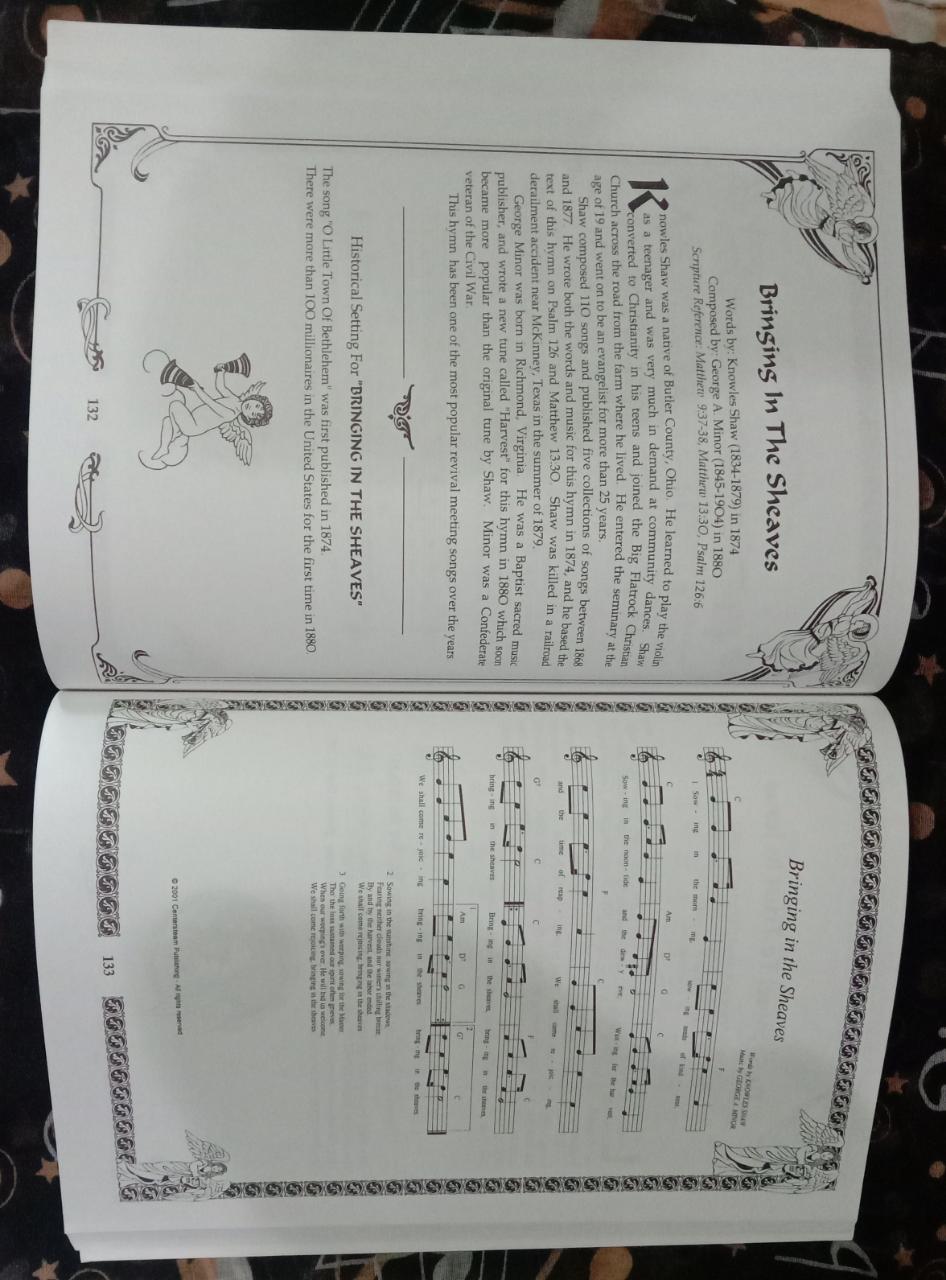 Bringing In The Sheaves
Words by: Knowles Shaw (1834-1879) in 1874
Composed by: George A. Minor (1845-1904) in 1880
Scripture Reference: Matthew 9:37-38, Matthew 13:30, Psalm 126:6
Knowles Shaw was a native of Butler County, Ohio. He learned to play the violin
as a teenager and was very much in demand at community dances. Shaw
converted to Christianity in his teens and joined the Big Flatrock Christian
Church across the road from the farm where he lived. He entered the seminary at the
age of 19 and went on to be an evangelist for more than 25 years.
Shaw composed 110 songs and published five collections of songs between 1868
and 1877. He wrote both the words and music for this hymn in 1874, and he based the
text of this hymn on Psalm 126 and Matthew 13:30. Shaw was killed in a railroad
derailment accident near McKinney, Texas in the summer of 1879.
George Minor was born in Richmond, Virginia. He was a Baptist sacred music
publisher, and wrote a new tune called "Harvest" for this hymn in 1880 which soon
became more popular than the original tune by Shaw. Minor was a Confederate
veteran of the Civil War.
This hymn has been one of the most popular revival meeting songs over the years
Historical Setting For "BRINGING IN THE SHEAVES"
The song "O Little Town Of Bethlehem" was first published in 1874.
There were more than 100 millionaires in the United States for the first time in 1880.
132
Bringing in the Sheaves
Words by KNOWLES SHAW
Music by GEORGE A. MINOR
C F
1. Sow - ing in the morn - ing, sow - ing seeds of kind - ness,
C Am D7 G C
Sow - ing in the noon - tide and the dew - y eve; Wait - ing for the har - vest,
F C
and the time of reap - ing, We shall come re - joic - ing,
G7 C C F C
bring - ing in the sheaves Bring - ing in the sheaves, bring - ing in the sheaves,
1. Am D7 G 2. G7 C
We shall come re - joic - ing bring - ing in the sheaves bring - ing in the sheaves
2 Sowing in the sunshine, sowing in the shadows,
Fearing neither clouds nor winter's chilling breeze
By and by the harvest, and the labor ended,
We shall come rejoicing, bringing in the sheaves
3 Going forth with weeping, sowing for the Master
Tho' the loss sustained our spirit often grieves,
When our weeping's over, He will bid us welcome,
We shall come rejoicing, bringing in the sheaves
© 2001 Centerstream Publishing - All rights reserved
133